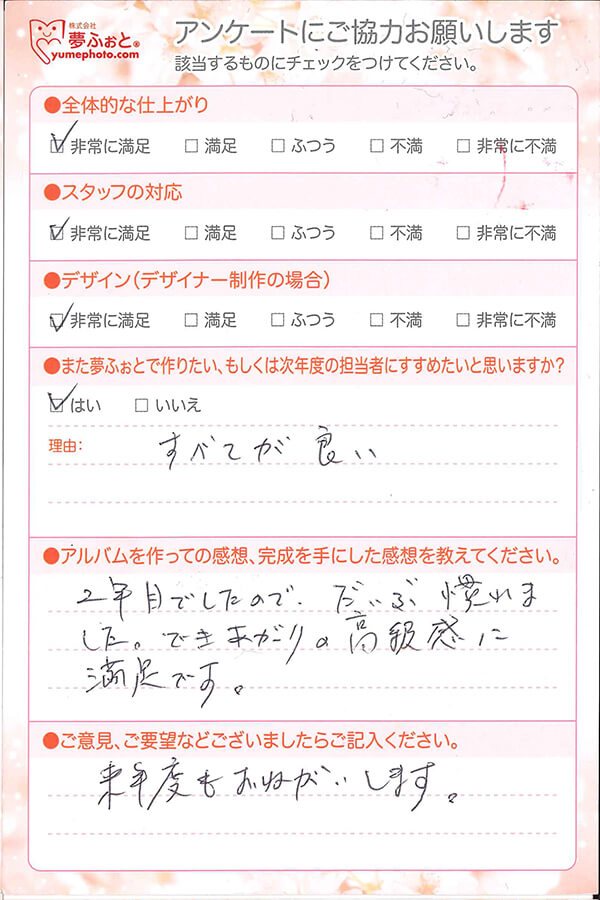 株式会社
夢ふぉと®
yumephoto.com
アンケートにご協力お願いします
該当するものにチェックをつけてください。
●全体的な仕上がり
☑ 非常に満足 □ 満足 □ ふつう □ 不満 □ 非常に不満
●スタッフの対応
☑ 非常に満足 □ 満足 □ ふつう □ 不満 □ 非常に不満
●デザイン(デザイナー制作の場合)
☑ 非常に満足 □ 満足 □ ふつう □ 不満 □ 非常に不満
●また夢ふぉとで作りたい、もしくは次年度の担当者にすすめたいと思いますか?
☑ はい □ いいえ
理由: すべてが良い
●アルバムを作っての感想、完成を手にした感想を教えてください。
2年目でしたので、だいぶ慣れま
した。できあがりの高級感に
満足です。
●ご意見、ご要望などございましたらご記入ください。
来年度もおねがいします。